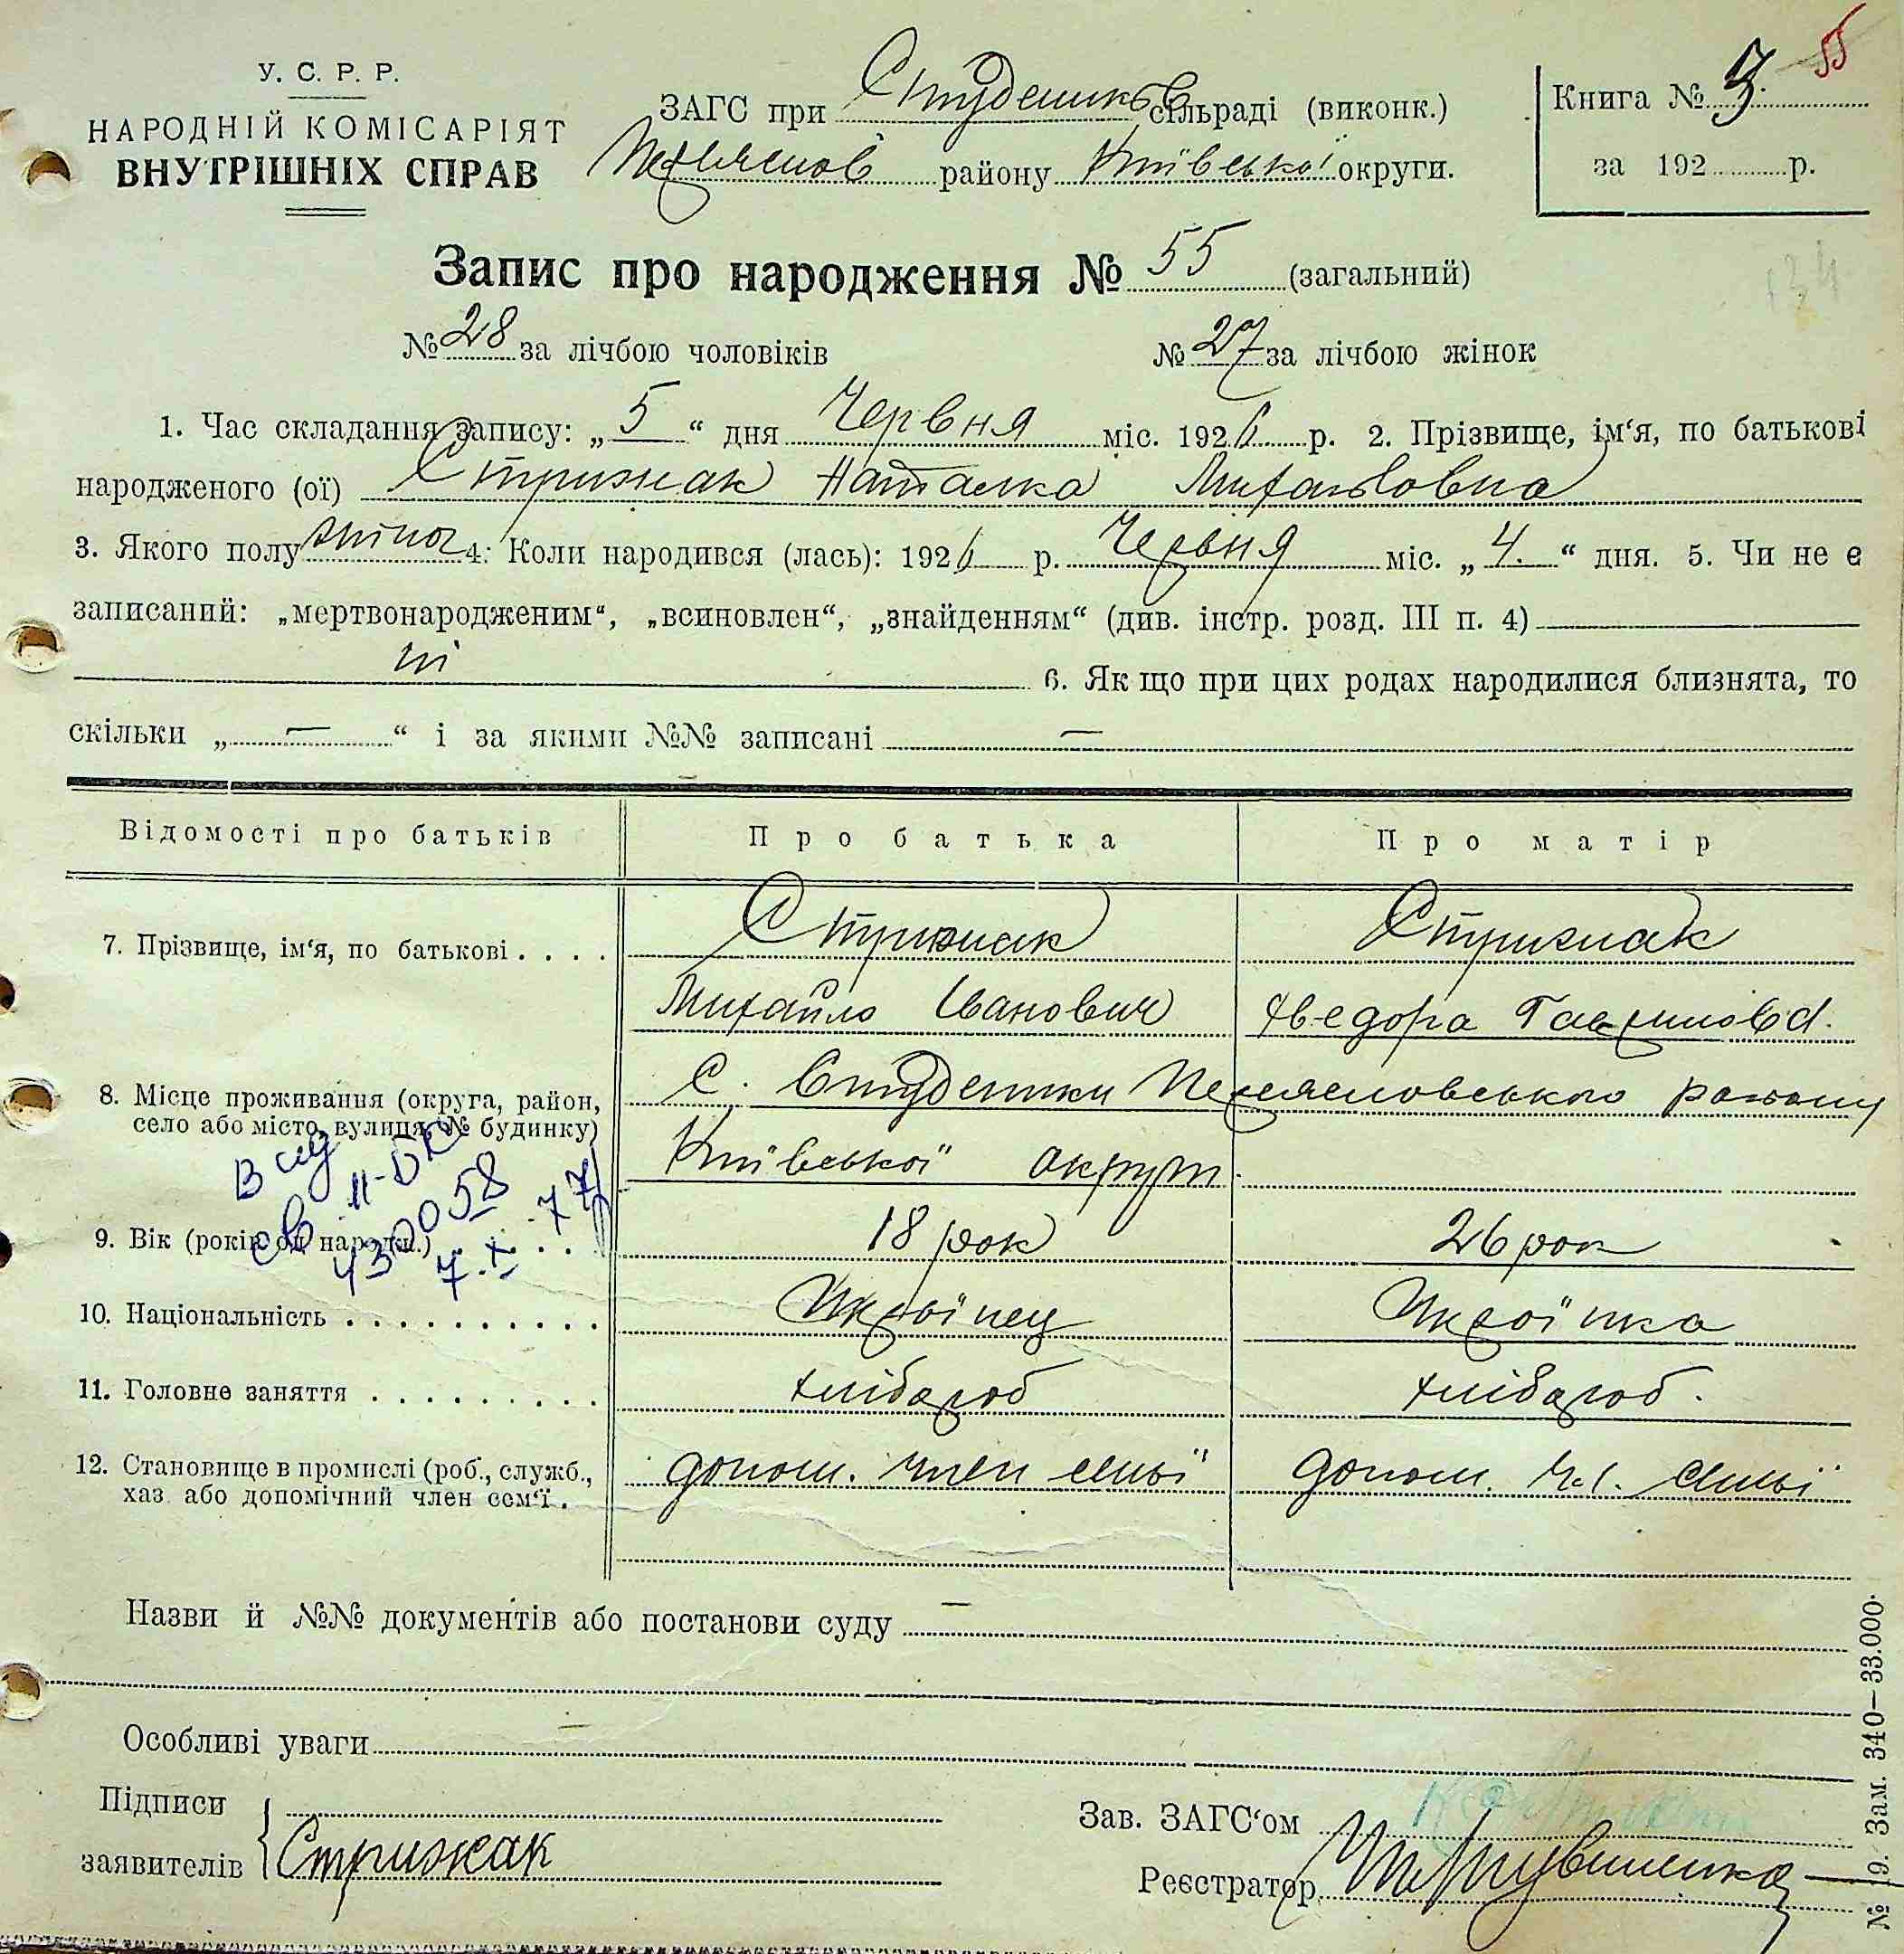 У. С. Р. Р.
НАРОДНІЙ КОМІСАРІЯТ
ВНУТРІШНІХ СПРАВ
ЗАГС при Студеників сільраді (виконк.)
району Київської округи.
Книга № 3
55
за 192 р.
Запис про народження № 55 (загальний)
134
№ 28 за лічбою чоловіків № 27 за лічбою жінок
1. Час складання запису: „5“ дня Червня міс. 1926 р. 2. Прізвище, ім‘я, по батькові
народженого (ої) Стрижак Наталка Михайловна
3. Якого полу жіноч 4. Коли народився (лась): 1926 р. Червня міс. „4.“ дня. 5. Чи не є
записаний: „мертвонародженим“, „всиновлен“, „знайденням“ (див. інстр. розд. III п. 4)
ні 6. Як що при цих родах народилися близнята, то
скільки „—“ і за якими №№ записані —
Відомості про батьків Про батька Про матір
7. Прізвище, ім‘я, по батькові . . . . Стрижак Стрижак
Михайло Іванович Хведора Гаврилова.
8. Місце проживання (округа, район, село або місто, вулиця, № будинку) С. Студеники Переясловського району
Київської округи.
9. Вік (років од народж.) . . . . 18 рок 26 рок
430058
7.X.77
10. Національність . . . . . . . . . . Україпец Українка
11. Головне заняття . . . . . . . . . хлібароб хлібароб.
12. Становище в промислі (роб., служб., хаз. або допомічний член сем‘ї. допом. член семьї допом. чл. семьї
Назви й №№ документів або постанови суду —
Особливі уваги —
Підписи
заявителів Стрижак
Зав. ЗАГС‘ом
Реєстратор
№ 19. Зам. 340—33.000.